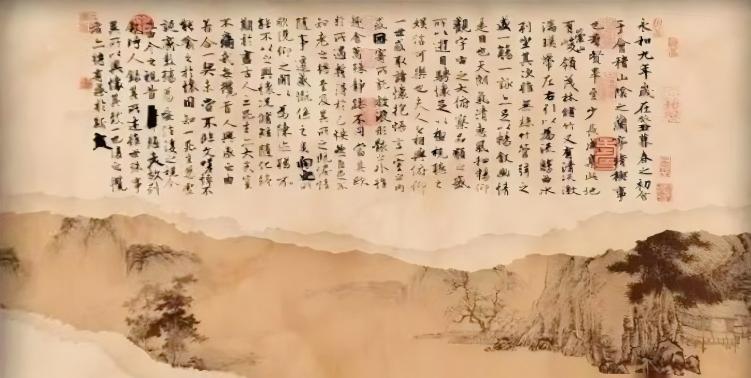 永和九年歲在癸丑暮春之初會
于會稽山陰之蘭亭脩禊事
也羣賢畢至少長咸集此地
有崇山峻領茂林脩竹又有清流激
湍暎帶左右引以為流觴曲水
列坐其次雖無絲竹管弦之
盛一觴一詠亦足以暢敘幽情
是日也天朗氣清惠風和暢仰
觀宇宙之大俯察品類之盛
所以遊目騁懷足以極視聽之
娛信可樂也夫人之相與俯仰
一世或取諸懷抱悟言一室之內
或因寄所託放浪形骸之外雖
趣舍萬殊靜躁不同當其欣
於所遇蹔得於己怏然自足不
知老之將至及其所之既惓情
隨事遷感慨係之矣向之所
欣俛仰之間以為陳迹猶不
能不以之興懷況脩短隨化終
期於盡古人云死生亦大矣豈
不痛哉每攬昔人興感之由
若合一契未嘗不臨文嗟悼不
能喻之於懷固知一死生為虛
誕齊彭殤為妄作後之視今
亦由今之視昔悲夫故列
敘時人錄其所述雖世殊事
異所以興懷其致一也後之攬
者亦將有感於斯